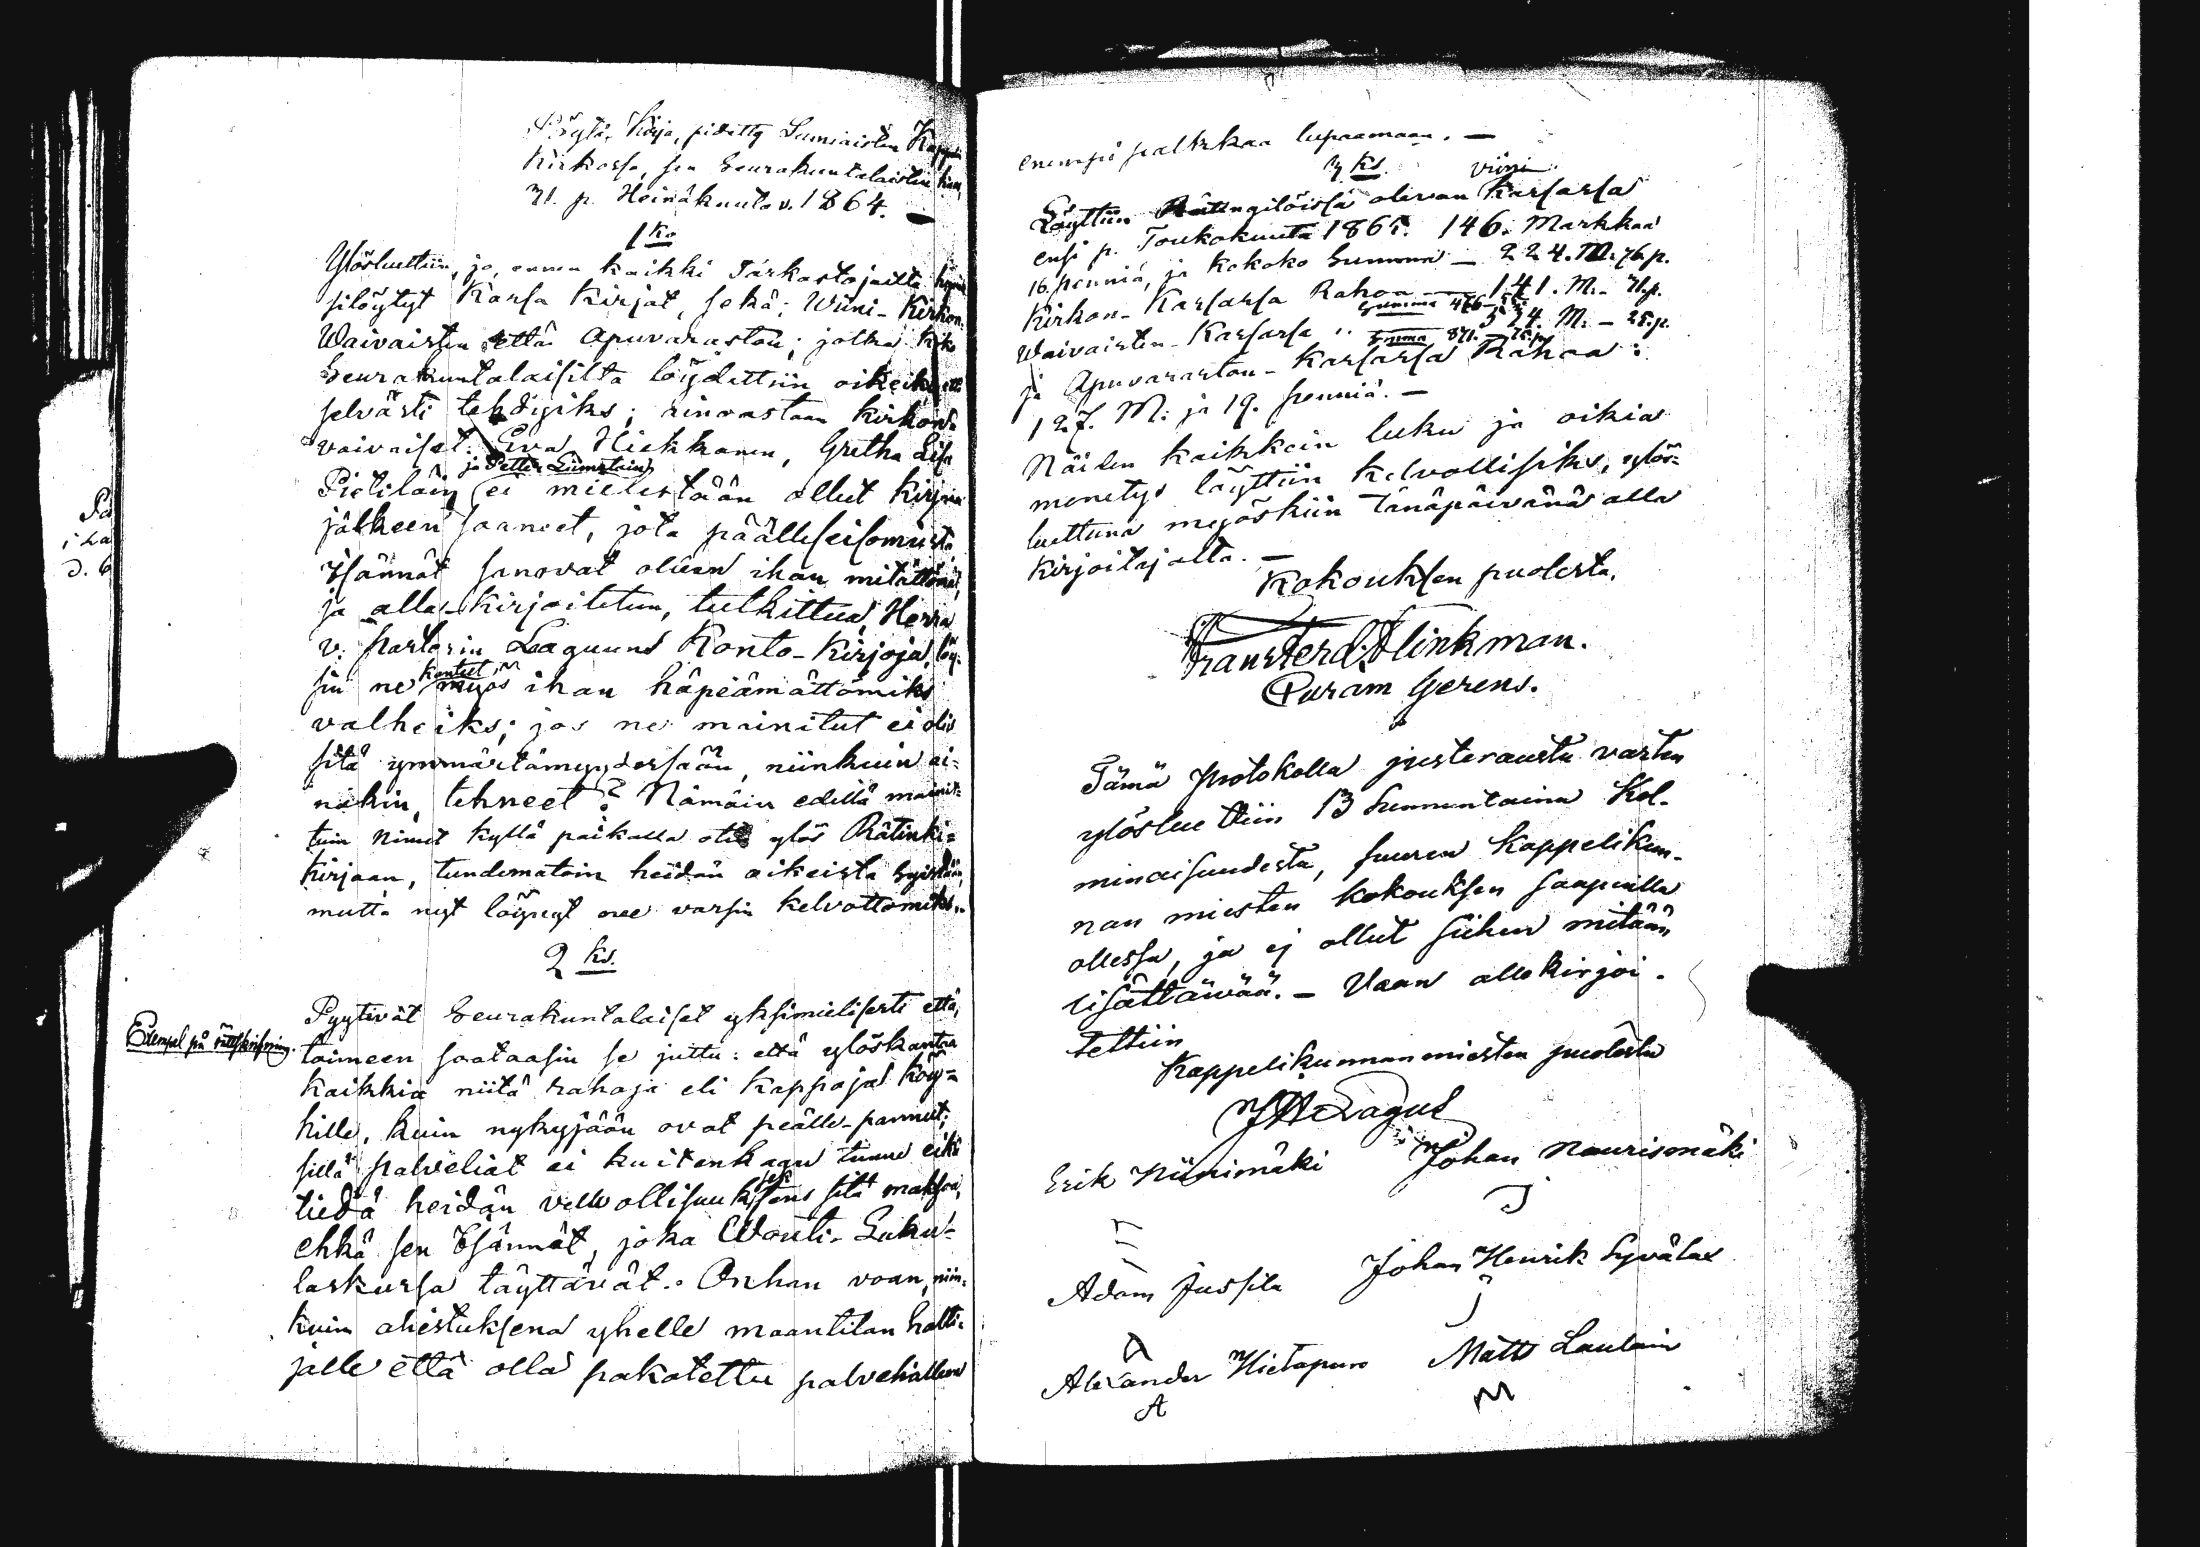 Pöytä-Kirja, pidetty Sumiaisten Kappeli
Kirkossa, sen Seurakuntalaisten kan,
31. p. Heinäkuuta v. 1864. —
1 ks.
Ylösluettiin, jo, ennen kaikki Tarkastajailta hyvik-
silöytyt Kassa Kirjat, sekä; Wiini- Kirkon-
Waivaisten että Apuvaraston; jotka koko
Seurakuntalaisilta löydettiin oikeiks, että
selvästi tehdyiks; ainoastaan kirkon-
vaivaiset: Eva Hiekkanen, Gretha Lisa
ja Petter Liimatain
Pietiläin ei mielestään ollut Kirjain
jälkeen saaneet, jota päälleseisomusta
Isännät sanovat olevan ihan mitättömät,
ja alla-kirjoitetun, tutkittua, Herra
v. pastorin Laguund Konto-Kirjoja, löy-
sin ne kontset myös ihan häpeämättömiks
valheiks; jos ne mainitut ei olis
sitä ymmärtämyydessään, niinkuin ai-
nakin, tehneet? Nämäin edellä mainit-
tuin Nimet kyllä paikalla otin ylös Rätinki-
kirjaan, tundematoin heidän oikeista Syistään,
mutta nyt löysyt nee varsin kelvottomiks..
2 ks.
Pyytivät Seurakuntalaiset yksimielisesti että,
Exempel på rättskrifning.
toimeen saataisiin se juttu: että ylöskantaa
Kaikkia niitä rahoja eli kappoja Köy-
hille, kuin nykyjään ovat päälle-pannut;
sillä palveliat ei kuitenkaan tunne eikä
tiedä heidän velvollisuuksens sitä maksaa,
ehkä sen Isännät, joka Wouti- Luku-
laskussa täyttävät. Onhan vaan, niin-
kuin ahistuksena yhelle maantilan halti-
jalle että olla pakotettu palveliallens
enempi palkkaa lupaamaan. —
3 ks.
Löyttiin Rätingilöissä olevan viini Kassassa
ensi p. Toukokuuta 1865. 146. Markkaa
16. penniä, ja Kokoko Summa — 224. M. 76 p.
Kirkon- Kassassa Rahaa — 141. M. 71. p.
Waivaisten- Kassassa " 534. M. — 25. p.
ja Apuvaraston- Kassassa Rahaa:
127. M: ja 19. penniä. —
Näiden kaikkein luku ja oikia
menetys löyttiin kelvollisiks, ylös-
luettuna myöskiin Tänäpäivänä alla
Kirjoitajalta. —
Kokouksen puolesta.
Fransterd. Flinkman.
Curam Gerens.
Tämä Protokolla justerausta varten
ylösluettiin 13 Sunnuntaina Kol-
minaisuudesta, suuren Kappelikun-
nan miesten kokouksen saapuilla
ollessa, ja ej ollut siihen mitään
lisättävää. — Vaan allekirjoi-
tettiin
Kappelikunnanmiesten puolesta
JH Lagus
Erik Niinimäki Johan Naurismäki
Adam Jussila Johan Henrik Syvälax
J
A
Alexander Hietapuro Matts Laulain
A M